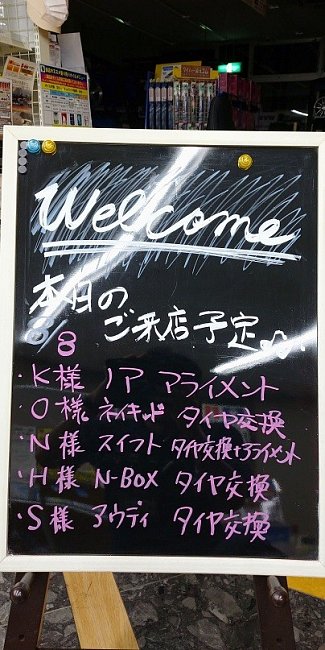 Welcome
本日の
ご来店予定
・K様 ノア アライメント
・O様 ネイキッド タイヤ交換
・N様 スイフト タイヤ交換+アライメント
・H様 N-BOX タイヤ交換
・S様 アウディ タイヤ交換